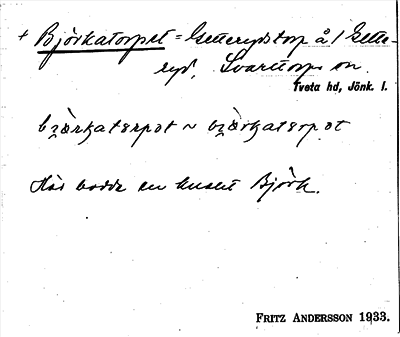 + Björkatorpet = Getterydstorp å / Gette-
ryd, Svarttorps sn.
Tveta hd, Jönk. l.
bjärkatorpət ~ bjärkatorpət
Här bodde en knekt Björk.
FRITZ ANDERSSON 1933.